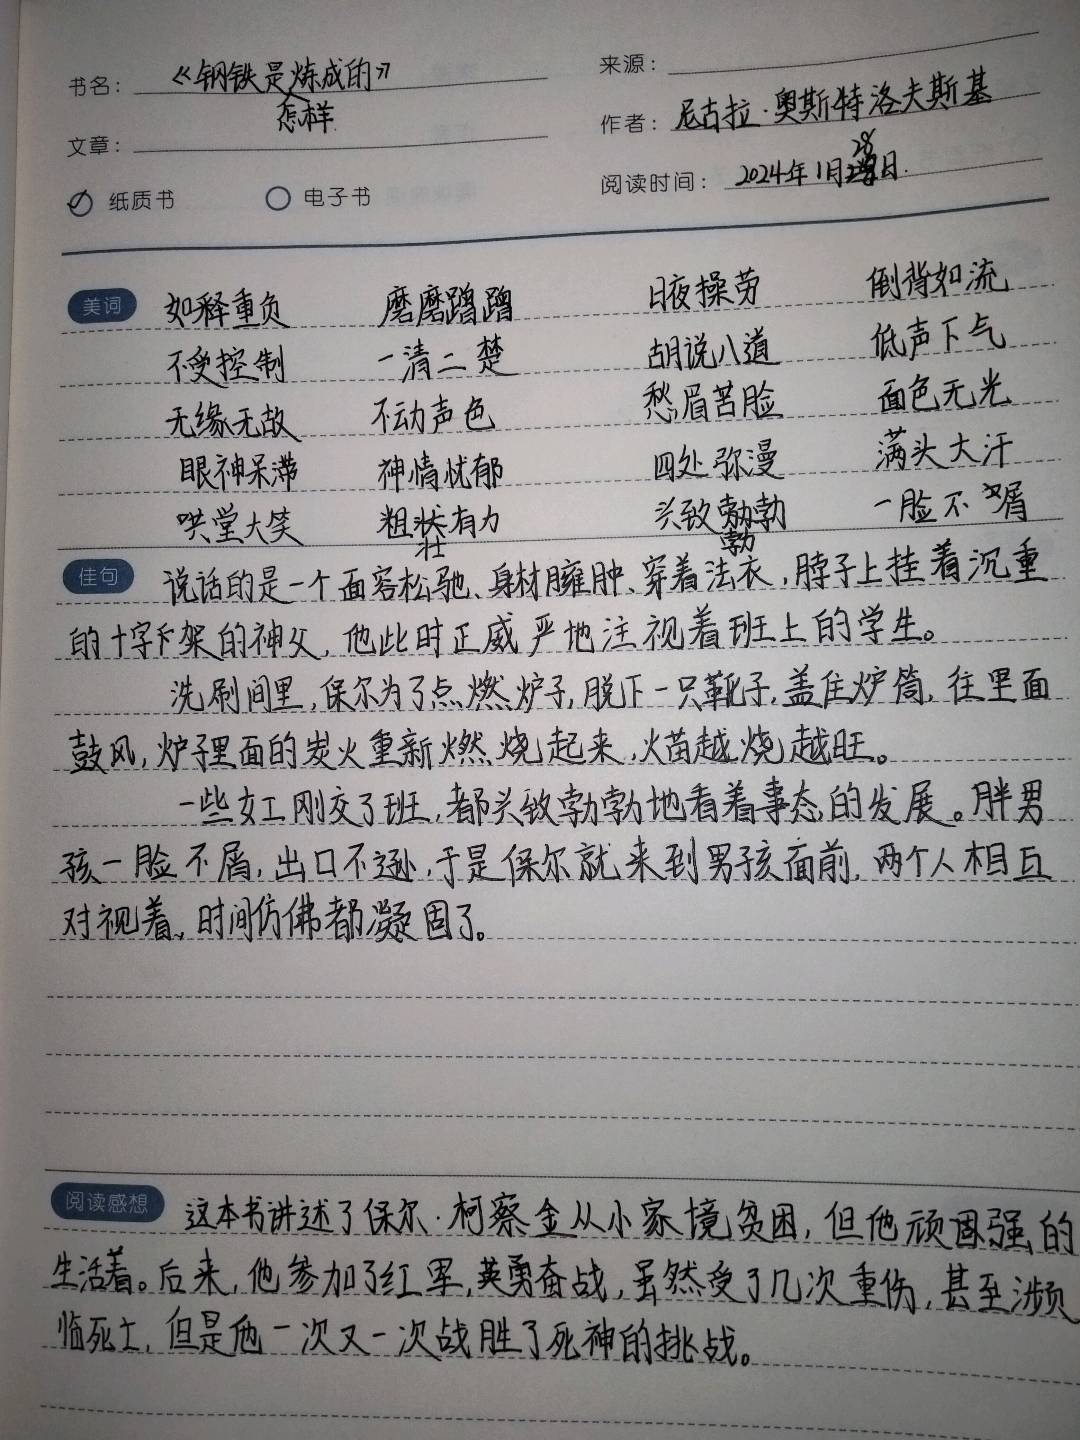 书名： 《钢铁是怎样炼成的》
来源：
文章：
作者： 尼古拉·奥斯特洛夫斯基
纸质书 电子书
阅读时间： 2024年1月28日.
美词 如释重负 磨磨蹭蹭 日夜操劳 倒背如流
不受控制 一清二楚 胡说八道 低声下气
无缘无故 不动声色 愁眉苦脸 面色无光
眼神呆滞 神情忧郁 四处弥漫 满头大汗
哄堂大笑 粗壮有力 兴致勃勃 一脸不屑
佳句 说话的是一个面容松驰、身材臃肿、穿着法衣,脖子上挂着沉重
的十字架的神父,他此时正威严地注视着班上的学生。
洗刷间里,保尔为了点燃炉子,脱下一只靴子,盖住炉筒,往里面
鼓风,炉子里面的炭火重新燃烧起来,火苗越烧越旺。
一些女工刚交了班,都兴致勃勃地看着事态的发展。胖男
孩一脸不屑,出口不逊,于是保尔就来到男孩面前,两个人相互
对视着,时间仿佛都凝固了。
阅读感想 这本书讲述了保尔·柯察金从小家境贫困,但他顽固强的
生活着。后来,他参加了红军,英勇奋战,虽然受了几次重伤,甚至濒
临死亡,但是他一次又一次战胜了死神的挑战。